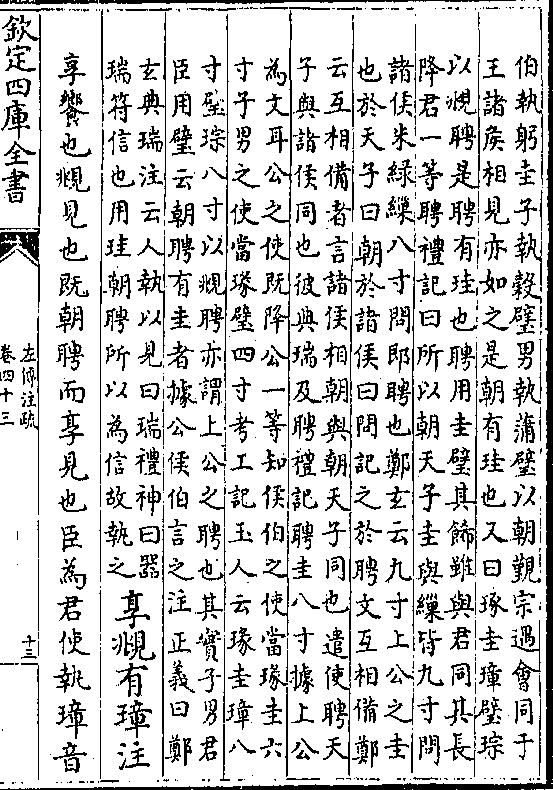 伯執躬圭子執穀璧男執蒲璧以朝覲宗遇會同于
王諸侯相見亦如之是朝有珪也又曰瑑圭璋璧琮
以覜聘是聘有珪也聘用圭璧其飾雖與君同其長
降君一等聘禮記曰所以朝天子圭與繅皆九寸問
諸侯朱綠繅八寸問即聘也鄭玄云九寸上公之圭
也於天子曰朝於諸侯曰問記之於聘文互相備鄭
云互相備者言諸侯相朝與朝天子同也遣使聘天
子與諸侯同也彼典瑞及聘禮記聘圭八寸據上公
為文耳公之使既降公一等知侯伯之使當瑑圭六
寸子男之使當瑑璧四寸考工記玉人云瑑圭璋八
寸璧琮八寸以覜聘亦謂上公之聘也其實子男君
臣用璧云朝聘有圭者據公侯伯言之注正義曰鄭
玄典瑞注云人執以見曰瑞禮神曰器
瑞符信也用珪朝聘所以為信故執之享覜有璋注
享饗也覜見也既朝聘而享見也臣為君使執璋音
欽定四庫全書
左傳注疏
卷四十三
十三